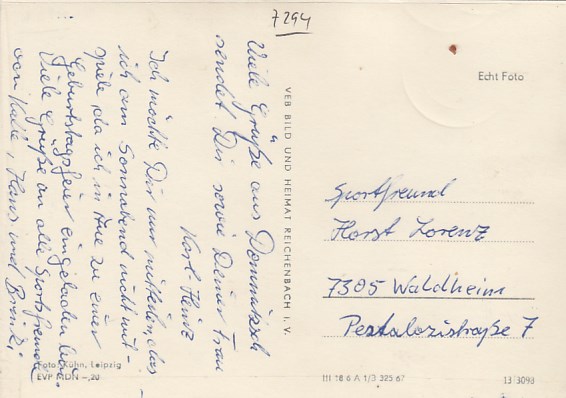 7294
Viele Grüße aus Dommitzsch
sendet Dir sowie Deiner Frau
Karl-Heinz
Ich möchte Dir nur mitteilen, das
ich am Sonnabend nicht mit-
spiele, da ich in Aue zu einer
Geburtstagsfeier eingeladen bin.
Viele Grüße an alle Sportfreunde
von Kalle, Hans und
VEB BILD UND HEIMAT REICHENBACH I. V.
Echt Foto
Sportfreund
Horst Lorenz
7305 Waldheim
Pestalozistraße 7
Foto: Kühn, Leipzig
EVP MDN –,20
III 18 6 A 1/3 325 67
13/3093